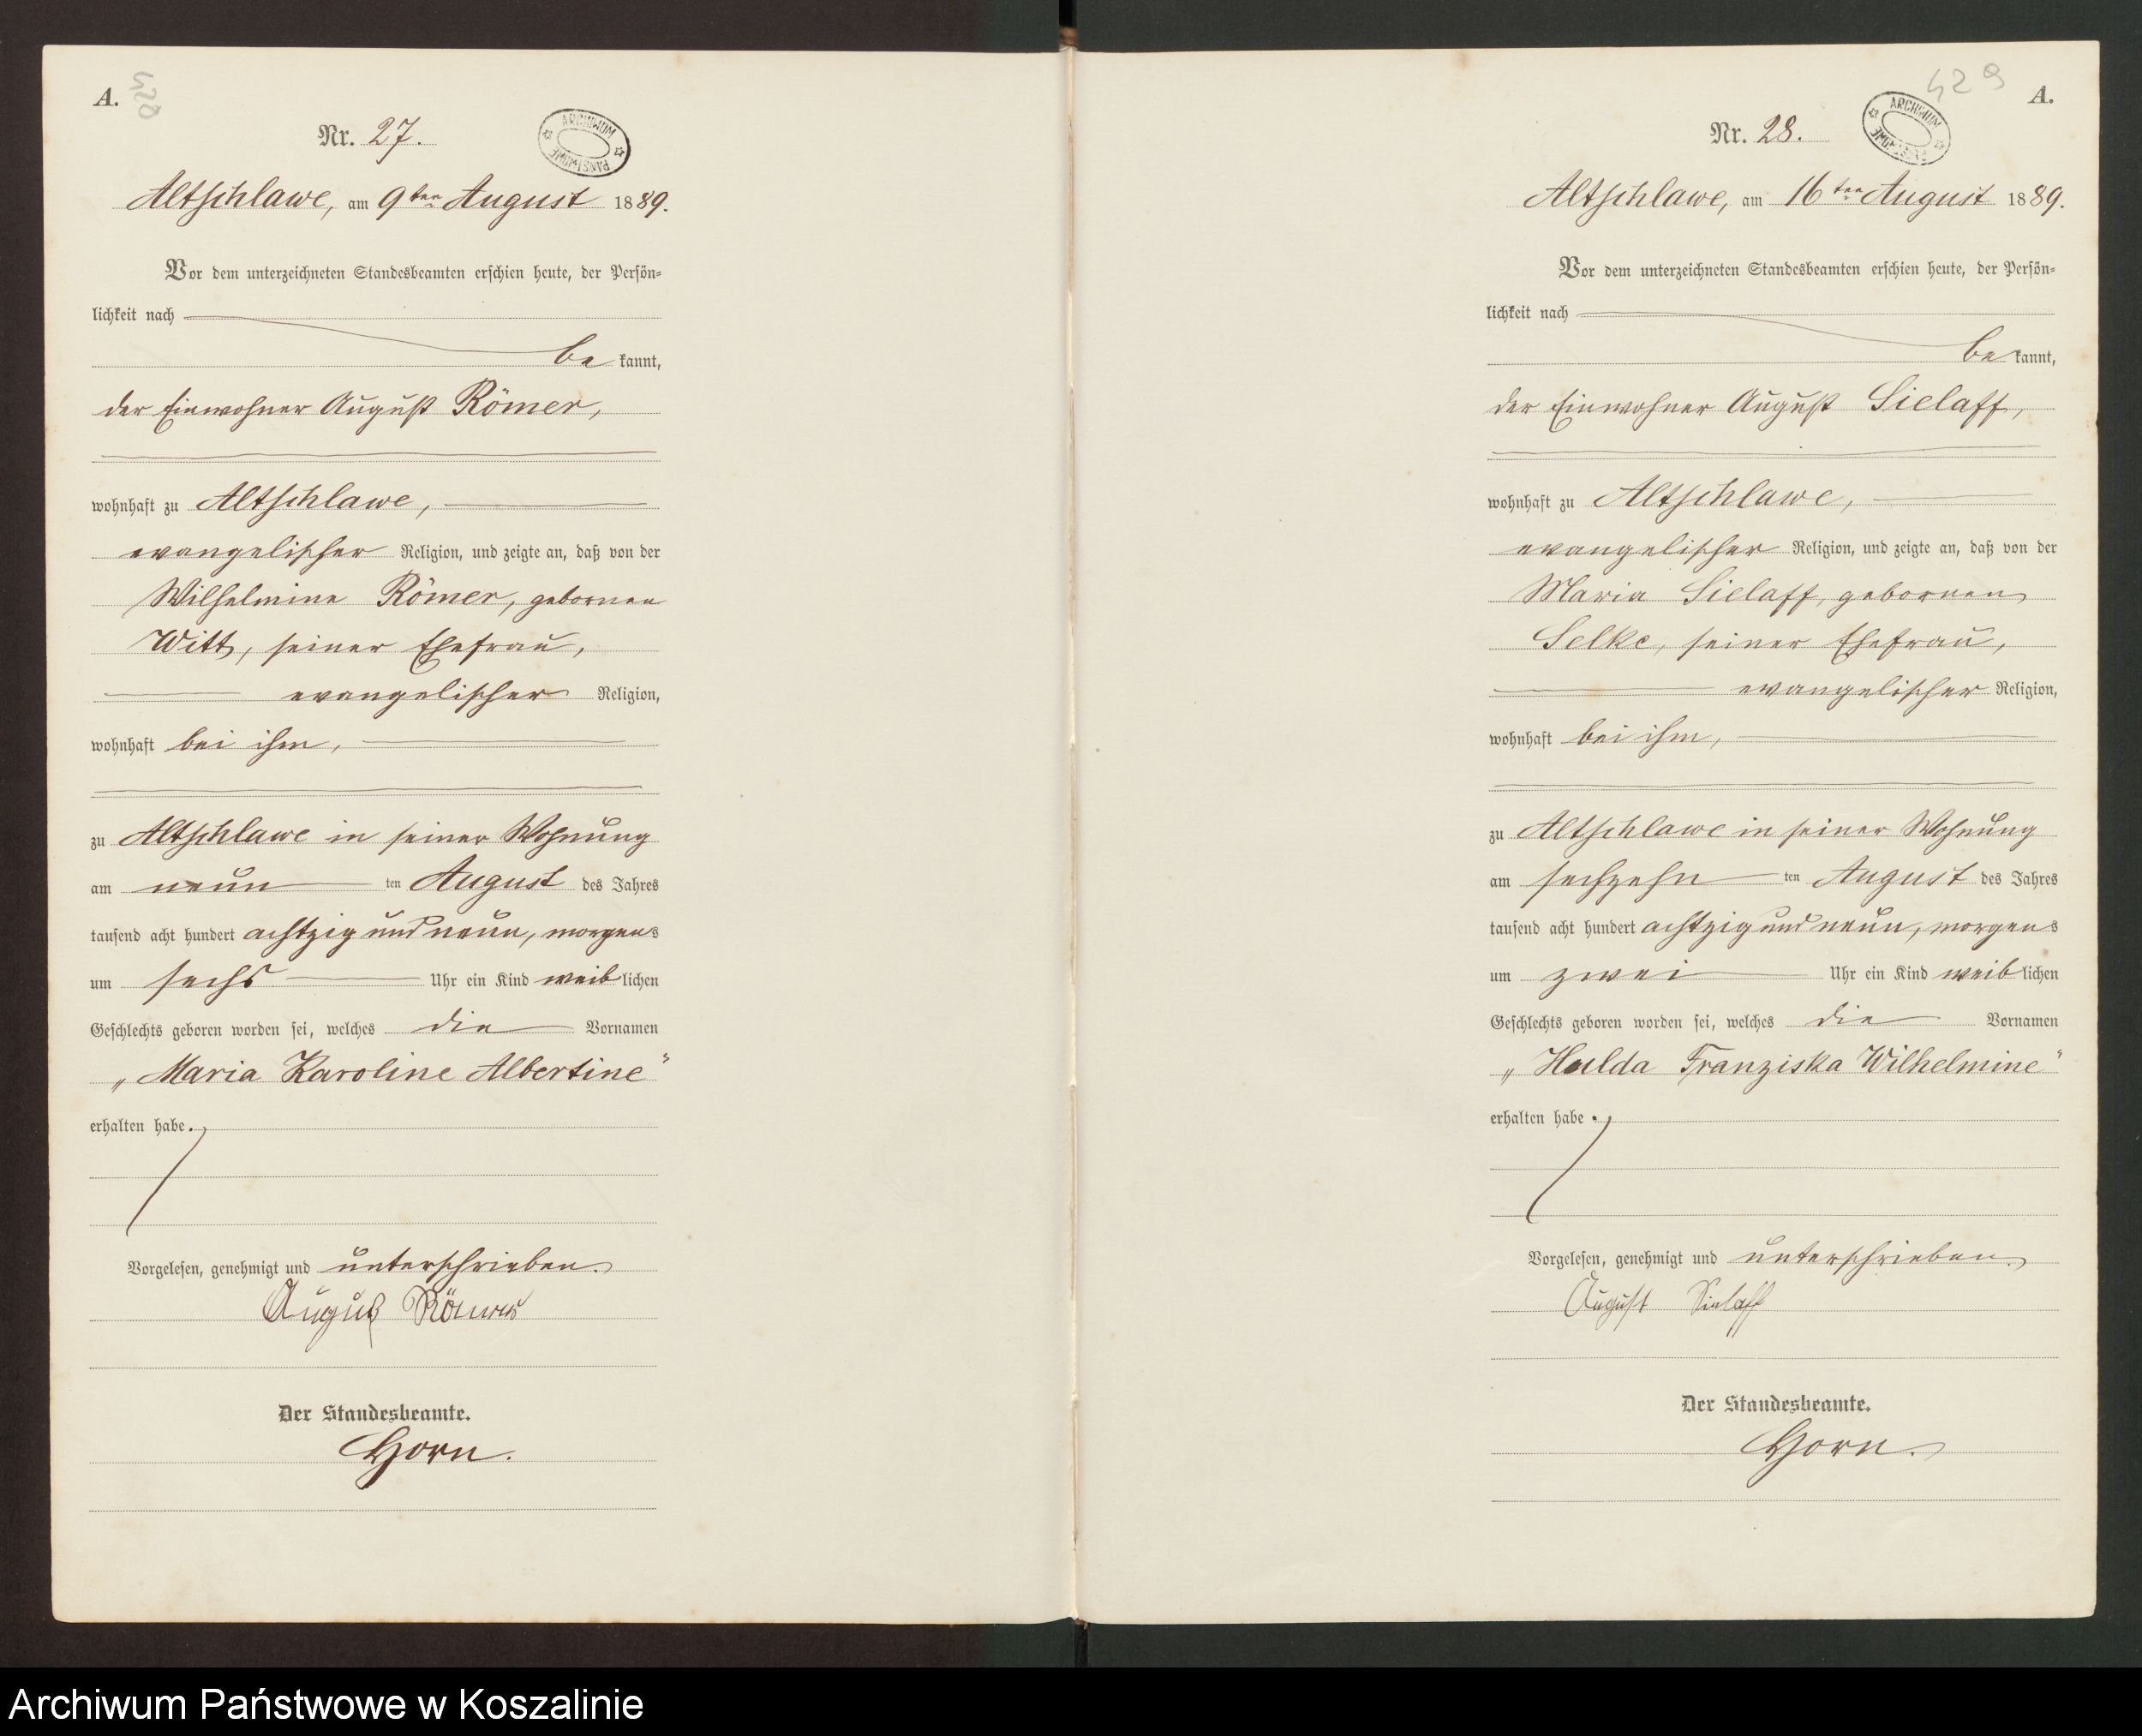 A.
428
Nr. 27.
ARCHIWUM PAŃSTWOWE
Altschlawe, am 9ten August 1889.
Vor dem unterzeichneten Standesbeamten erschien heute, der Persön=
lichkeit nach
be kannt,
der Einwohner August Römer,
wohnhaft zu Altschlawe,
evangelischer Religion, und zeigte an, daß von der
Wilhelmine Römer, gebornen
Witt, seiner Ehefrau,
evangelischer Religion,
wohnhaft bei ihm,
zu Altschlawe in seiner Wohnung
am neun ten August des Jahres
tausend acht hundert achtzig und neun, morgens
um sechs Uhr ein Kind weiblichen
Geschlechts geboren worden sei, welches die Vornamen
„Maria Karoline Albertine“
erhalten habe.
Vorgelesen, genehmigt und unterschrieben.
August Römer
Der Standesbeamte.
Horn.
429
A.
Nr. 28.
ARCHIWUM PAŃSTWOWE
Altschlawe, am 16ten August 1889.
Vor dem unterzeichneten Standesbeamten erschien heute, der Persön=
lichkeit nach
be kannt,
der Einwohner August Sielaff,
wohnhaft zu Altschlawe,
evangelischer Religion, und zeigte an, daß von der
Maria Sielaff, gebornen
Selke, seiner Ehefrau,
evangelischer Religion,
wohnhaft bei ihm,
zu Altschlawe in seiner Wohnung
am sechzehn ten August des Jahres
tausend acht hundert achtzig und neun, morgens
um zwei Uhr ein Kind weiblichen
Geschlechts geboren worden sei, welches die Vornamen
„Hulda Franziska Wilhelmine“
erhalten habe.
Vorgelesen, genehmigt und unterschrieben.
August Sielaff
Der Standesbeamte.
Horn.
Archiwum Państwowe w Koszalinie